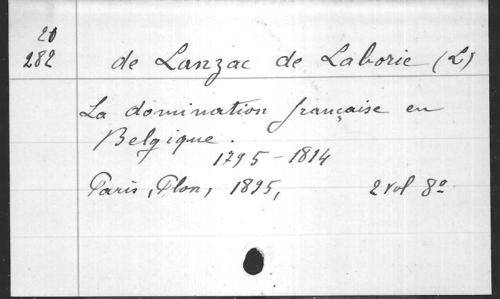 20
282
de Lanzac de Laborie (L)
La domination française en
Belgique.
1795-1814
Paris, Plon, 1895, 2 vol 8º